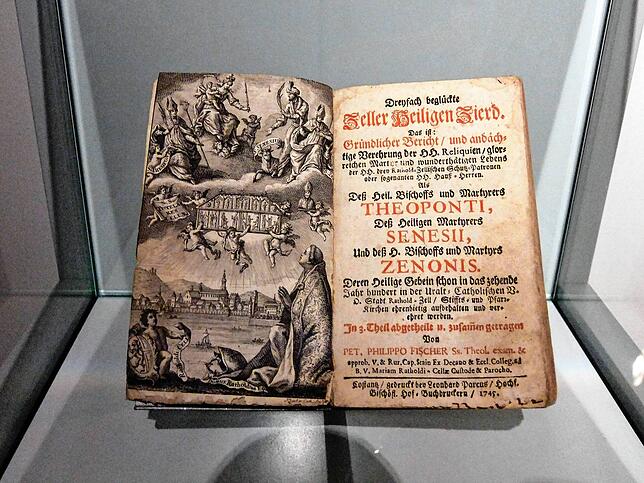 Dreyfach beglückte
Zeller Heiligen Zierd.
Das ist:
Gründlicher Bericht / und andäch-
tige Verehrung der HH. Reliquien / glor-
reichen Marter und wunderthätigen Lebens
der HH. drey Rathold-Zellischen Schutz-Patronen
oder sogenanten HH. Hauß-Herren.
Als
Deß Heil. Bischoffs und Martyrers
THEOPONTI,
Deß Heiligen Martyrers
SENESII,
Und deß H. Bischoffs und Martyrs
ZENONIS.
Deren Heilige Gebein schon in das zehende
Jahr hundert in der Uralt-Catholischen V.
O. Stadt Rathold-Zell / Stiffts- und Pfarr-
Kirchen ehrenbietig aufbehalten und ver-
ehret werden.
In 3. Theil abgetheilt u. zusamen getragen
Von
PET. PHILIPPO FISCHER Ss. Theol. exam. &
approb. V. & Rur. Cap. Ex Decano & Eccl. Colleg. ad
B. V. Mariam Ratholdi-Cellæ Custode & Parocho.
Costantz / gedruckt bey Leonhard Parcus / Hochf.
Bischöfl. Hof-Buchdruckern / 1745.